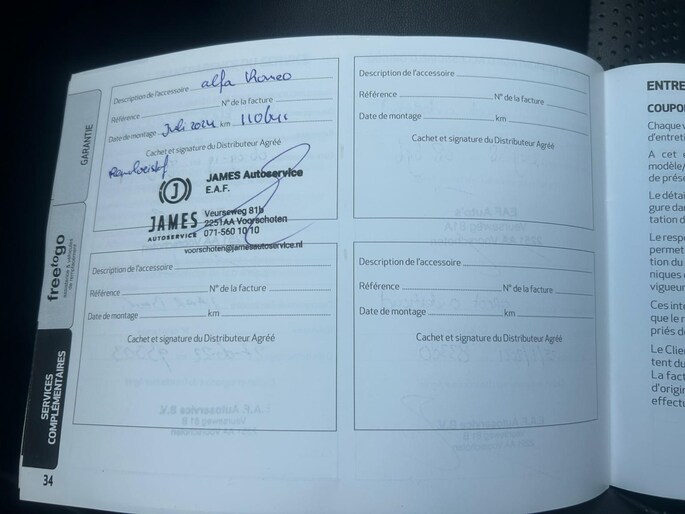 GARANTIE
freetogo
SERVICES
COMPLÉMENTAIRES
34
Description de l'accessoire alfa Romeo
Référence N° de la facture
Date de montage Juli 2024 km
Cachet et signature du Distributeur Agréé
JAMES Autoservice
E.A.F.
JAMES
AUTOSERVICE
Veurseweg 81b
2251AA Voorschoten
071-560 10 10
voorschoten@jamesautoservice.nl
Description de l'accessoire
Référence N° de la facture
Date de montage km
Cachet et signature du Distributeur Agréé
Description de l'accessoire
Référence N° de la facture
Date de montage km
Cachet et signature du Distributeur Agréé
Description de l'accessoire
Référence N° de la facture
Date de montage km
Cachet et signature du Distributeur Agréé
ENTRE
COUPO
Chaque v
d'entreti
A cet e
modèle/
de prés
Le détai
gure da
tation d
Le resp
permet
tion du
niques
vigueur
Ces int
que le r
priés d
Le Clie
tent du
La fact
d'origin
effectu